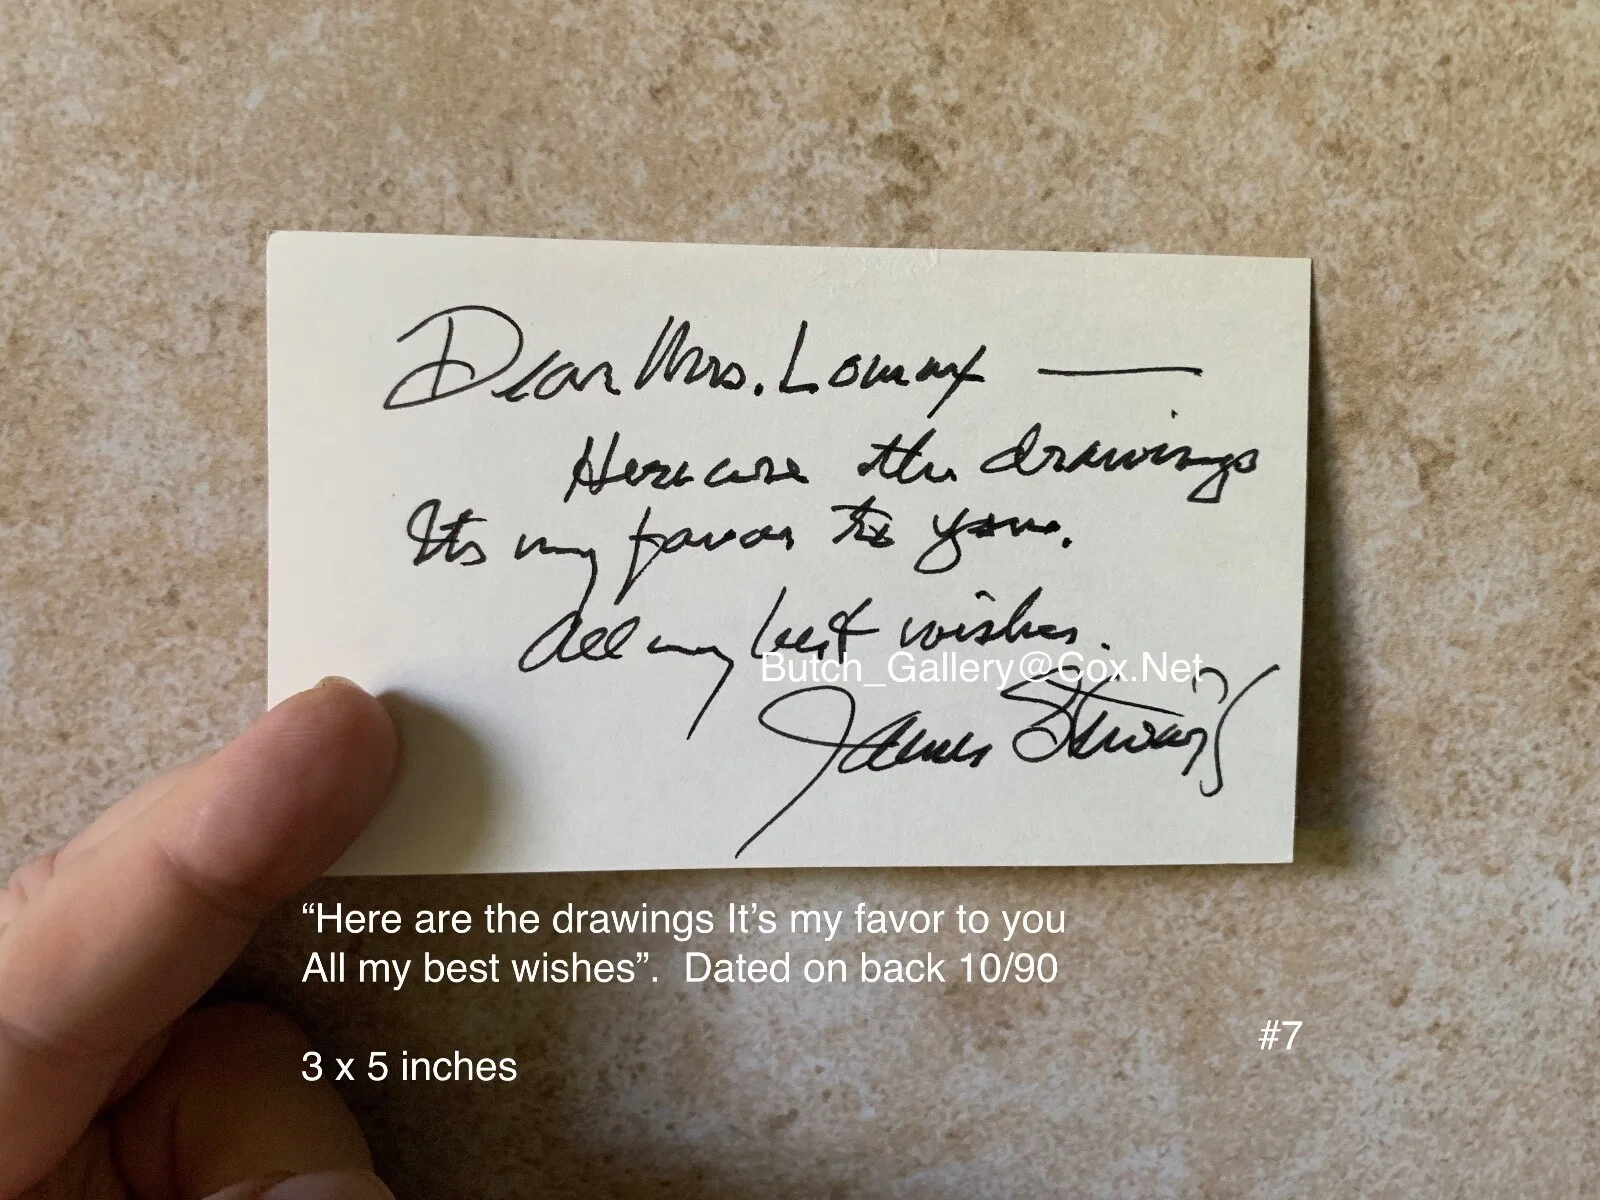 Dear Mrs. Lomax —
Here are the drawings
Its my favor to you.
All my best wishes.
Butch_Gallery@Cox.Net
James Stewart
“Here are the drawings It’s my favor to you
All my best wishes”. Dated on back 10/90
#7
3 x 5 inches